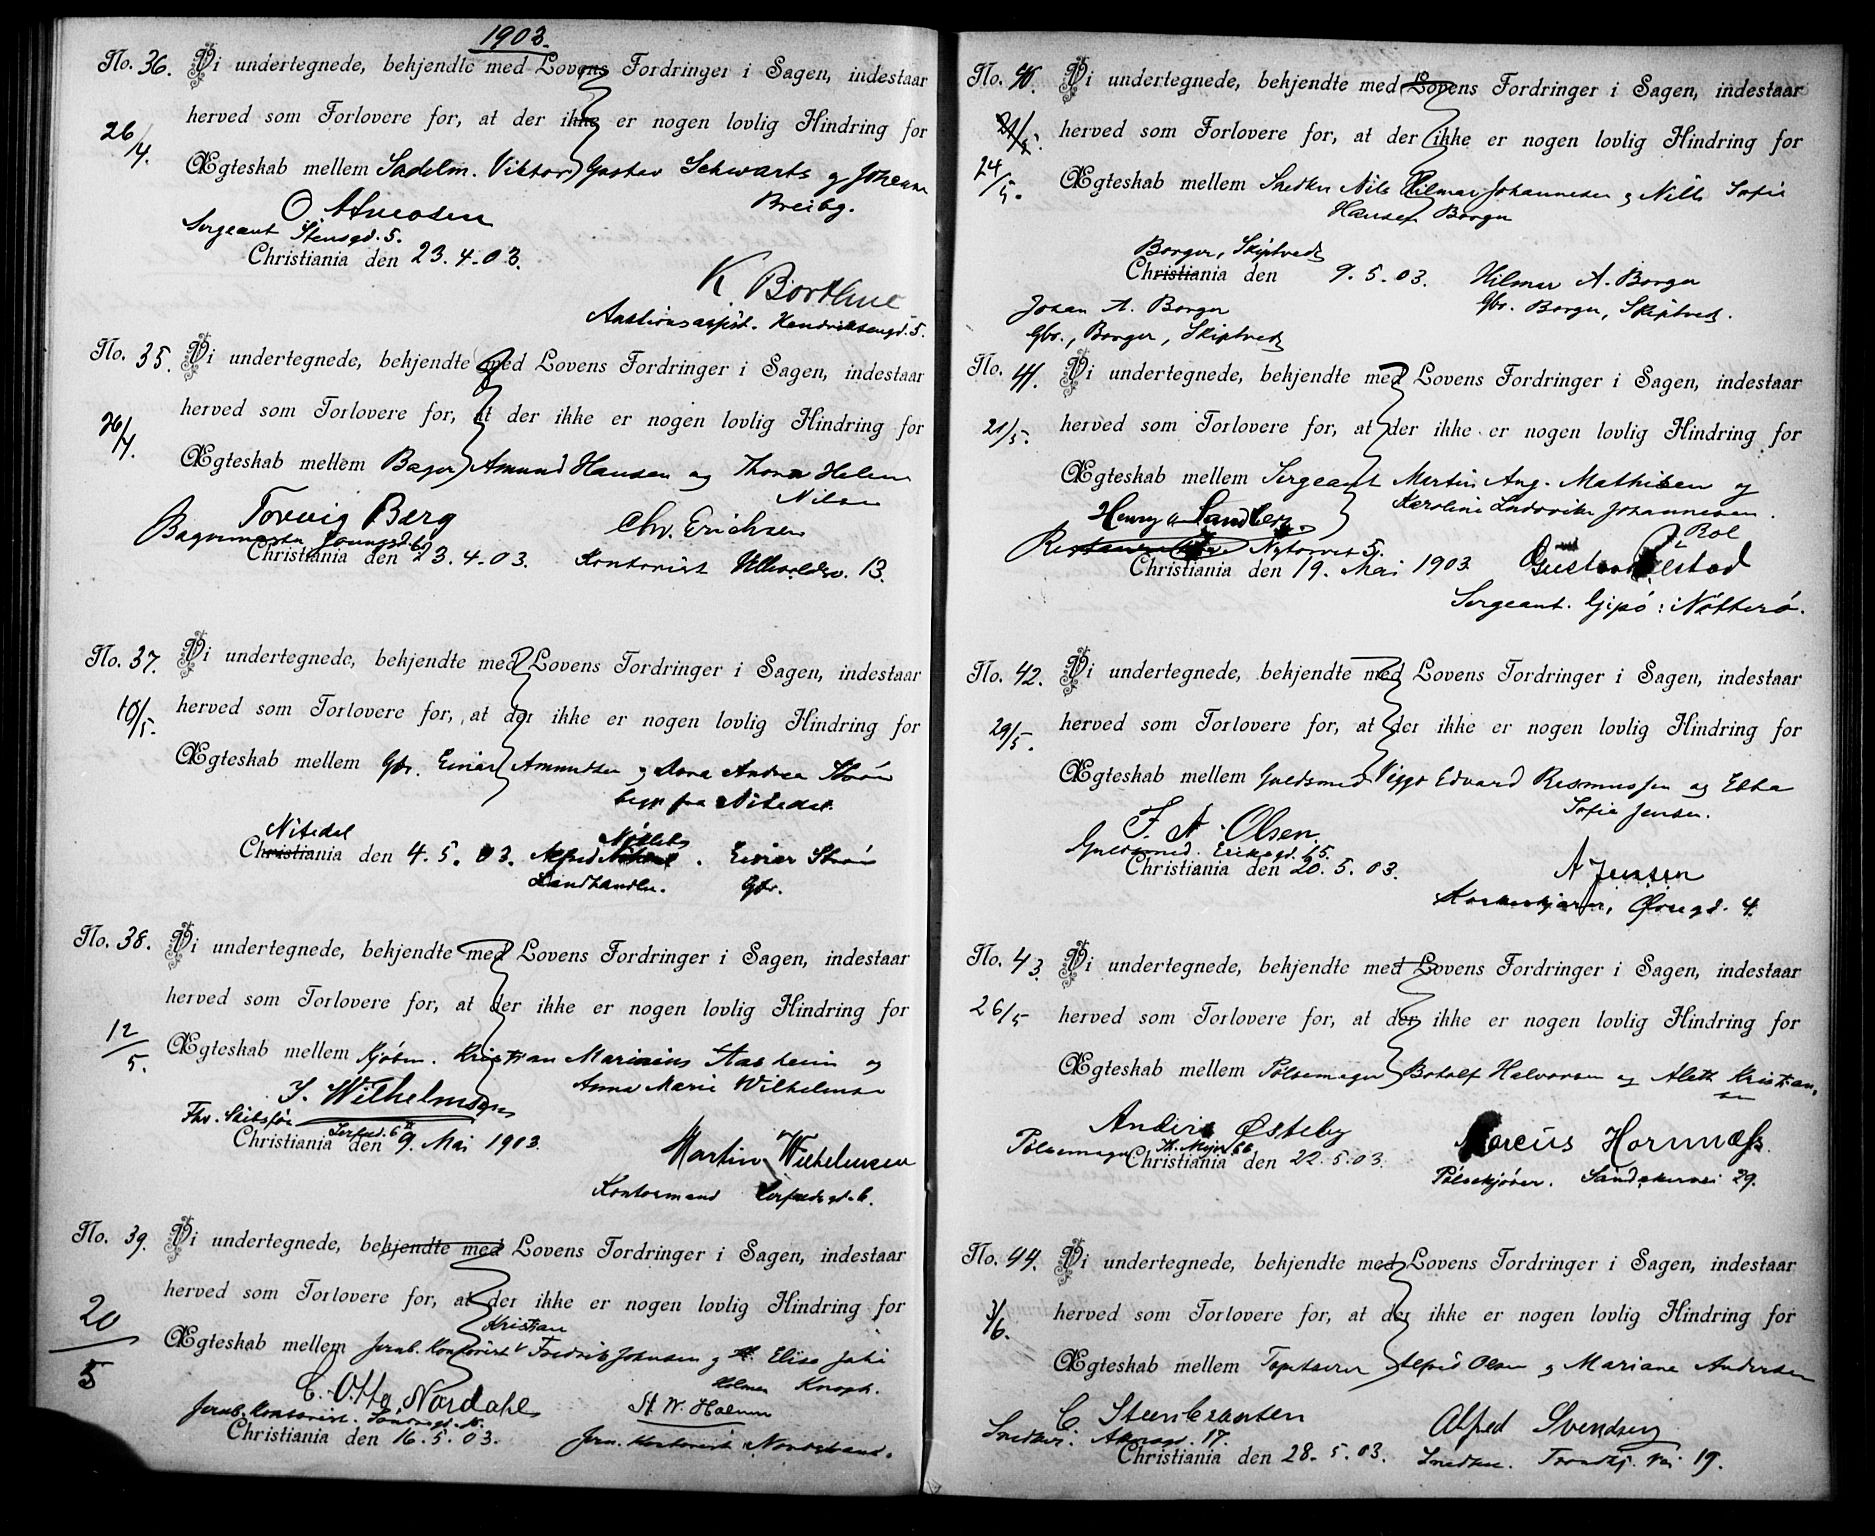 1903.
No. 36. Vi undertegnede, bekjendte med Lovens Fordringer i Sagen, indestaar
26/4. herved som Forlovere for, at der ikke er nogen lovlig Hindring for
Ægteskab mellem Sadelm. Viktor Gustav Schwartz og Johanne
Breibg.
O.
Sergeant Stensgd. 5.
Christiania den 23.4.03.
K. Borthne
Auktionsaspt. Hendriksengd. 5.
No. 35. Vi undertegnede, bekjendte med Lovens Fordringer i Sagen, indestaar
26/4. herved som Forlovere for, at der ikke er nogen lovlig Hindring for
Ægteskab mellem Bager Amund Hansen og Thora Helene
Nilsen
Torvig Berg Chr. Erichsen
Bagermester
Christiania den 23.4.03. Kontorist Ullevoldsv. 13.
No. 37. Vi undertegnede, bekjendte med Lovens Fordringer i Sagen, indestaar
10/5. herved som Forlovere for, at der ikke er nogen lovlig Hindring for
Ægteskab mellem Gbr. Einar Amundsen og Anna Andrea Strøm
begge fra Nitedal.
Nitedal
Christiania den 4.5.03. Alfred . Einar Strøm
Landhandler. Gbr.
No. 38. Vi undertegnede, bekjendte med Lovens Fordringer i Sagen, indestaar
12/5. herved som Forlovere for, at der ikke er nogen lovlig Hindring for
Ægteskab mellem Kjøbm. Kristian Marinius Aasheim og
Anna Marie Wilhelmsen
J. Wilhelmsen
Fhv. Skibsfør
Christiania den 9. Mai 1903.
Martin Wilhelmsen
Kontormand 6.
No. 39. Vi undertegnede, bekjendte med Lovens Fordringer i Sagen, indestaar
20/5 herved som Forlovere for, at der ikke er nogen lovlig Hindring for
Kristian
Ægteskab mellem Jernb. Kontorist Fredrik Johnsen og Elise
Holmen Knoph.
C. Otto Nordahl St. W. Holmen
Jernb. Kontorist.
Christiania den 16.5.03. Jern. Kontorist Nordstrand.
No. 40. Vi undertegnede, bekjendte med Lovens Fordringer i Sagen, indestaar
21/5. herved som Forlovere for, at der ikke er nogen lovlig Hindring for
24/5. Ægteskab mellem Snedker Nils Hilmar Johannesen og Nille Sofie
Hansen Borger
Borger, Skiptvedt
Christiania den 9.5.03. Hilmar A. Borger
Johan A. Borger Gbr. Borger, Skiptvedt.
Gbr., Borger, Skiptvedt
No. 41. Vi undertegnede, bekjendte med Lovens Fordringer i Sagen, indestaar
21/5. herved som Forlovere for, at der ikke er nogen lovlig Hindring for
Ægteskab mellem Sergeant Martin Aug. Mathisen og
Karoline Ludovika Johannesen.
Henry Sandberg
Nytorvet 5.
Christiania den 19. Mai 1903 Gustav
Sergeant. Gipø: Nøtterø.
No. 42. Vi undertegnede, bekjendte med Lovens Fordringer i Sagen, indestaar
29/5. herved som Forlovere for, at der ikke er nogen lovlig Hindring for
Ægteskab mellem Guldsmed Viggo Edvard Rasmussen og Ebba
Sofie Jensen.
F. A. Olsen.
Guldsmed. Eriksgd. 15.
Christiania den 20.5.03. A Jensen
4.
No. 43. Vi undertegnede, bekjendte med Lovens Fordringer i Sagen, indestaar
26/5 herved som Forlovere for, at der ikke er nogen lovlig Hindring for
Ægteskab mellem Pølsemager Botolf Halvorsen og Aleth Kristian-
sen
Anders Østeby Marcus Hornnæss.
Pølsemager Th. Meyersgd.
Christiania den 22.5.03. Pølsekjører. Sandakervei 29.
No. 44. Vi undertegnede, bekjendte med Lovens Fordringer i Sagen, indestaar
3/6. herved som Forlovere for, at der ikke er nogen lovlig Hindring for
Ægteskab mellem Tapetserer Alfred Olsen og Mariane Andersen
C. Steenbransten Alfred Svendsen
Snedker. Akersgd. 17.
Christiania den 28.5.03. Snedker. Trondhj. Vei 19.